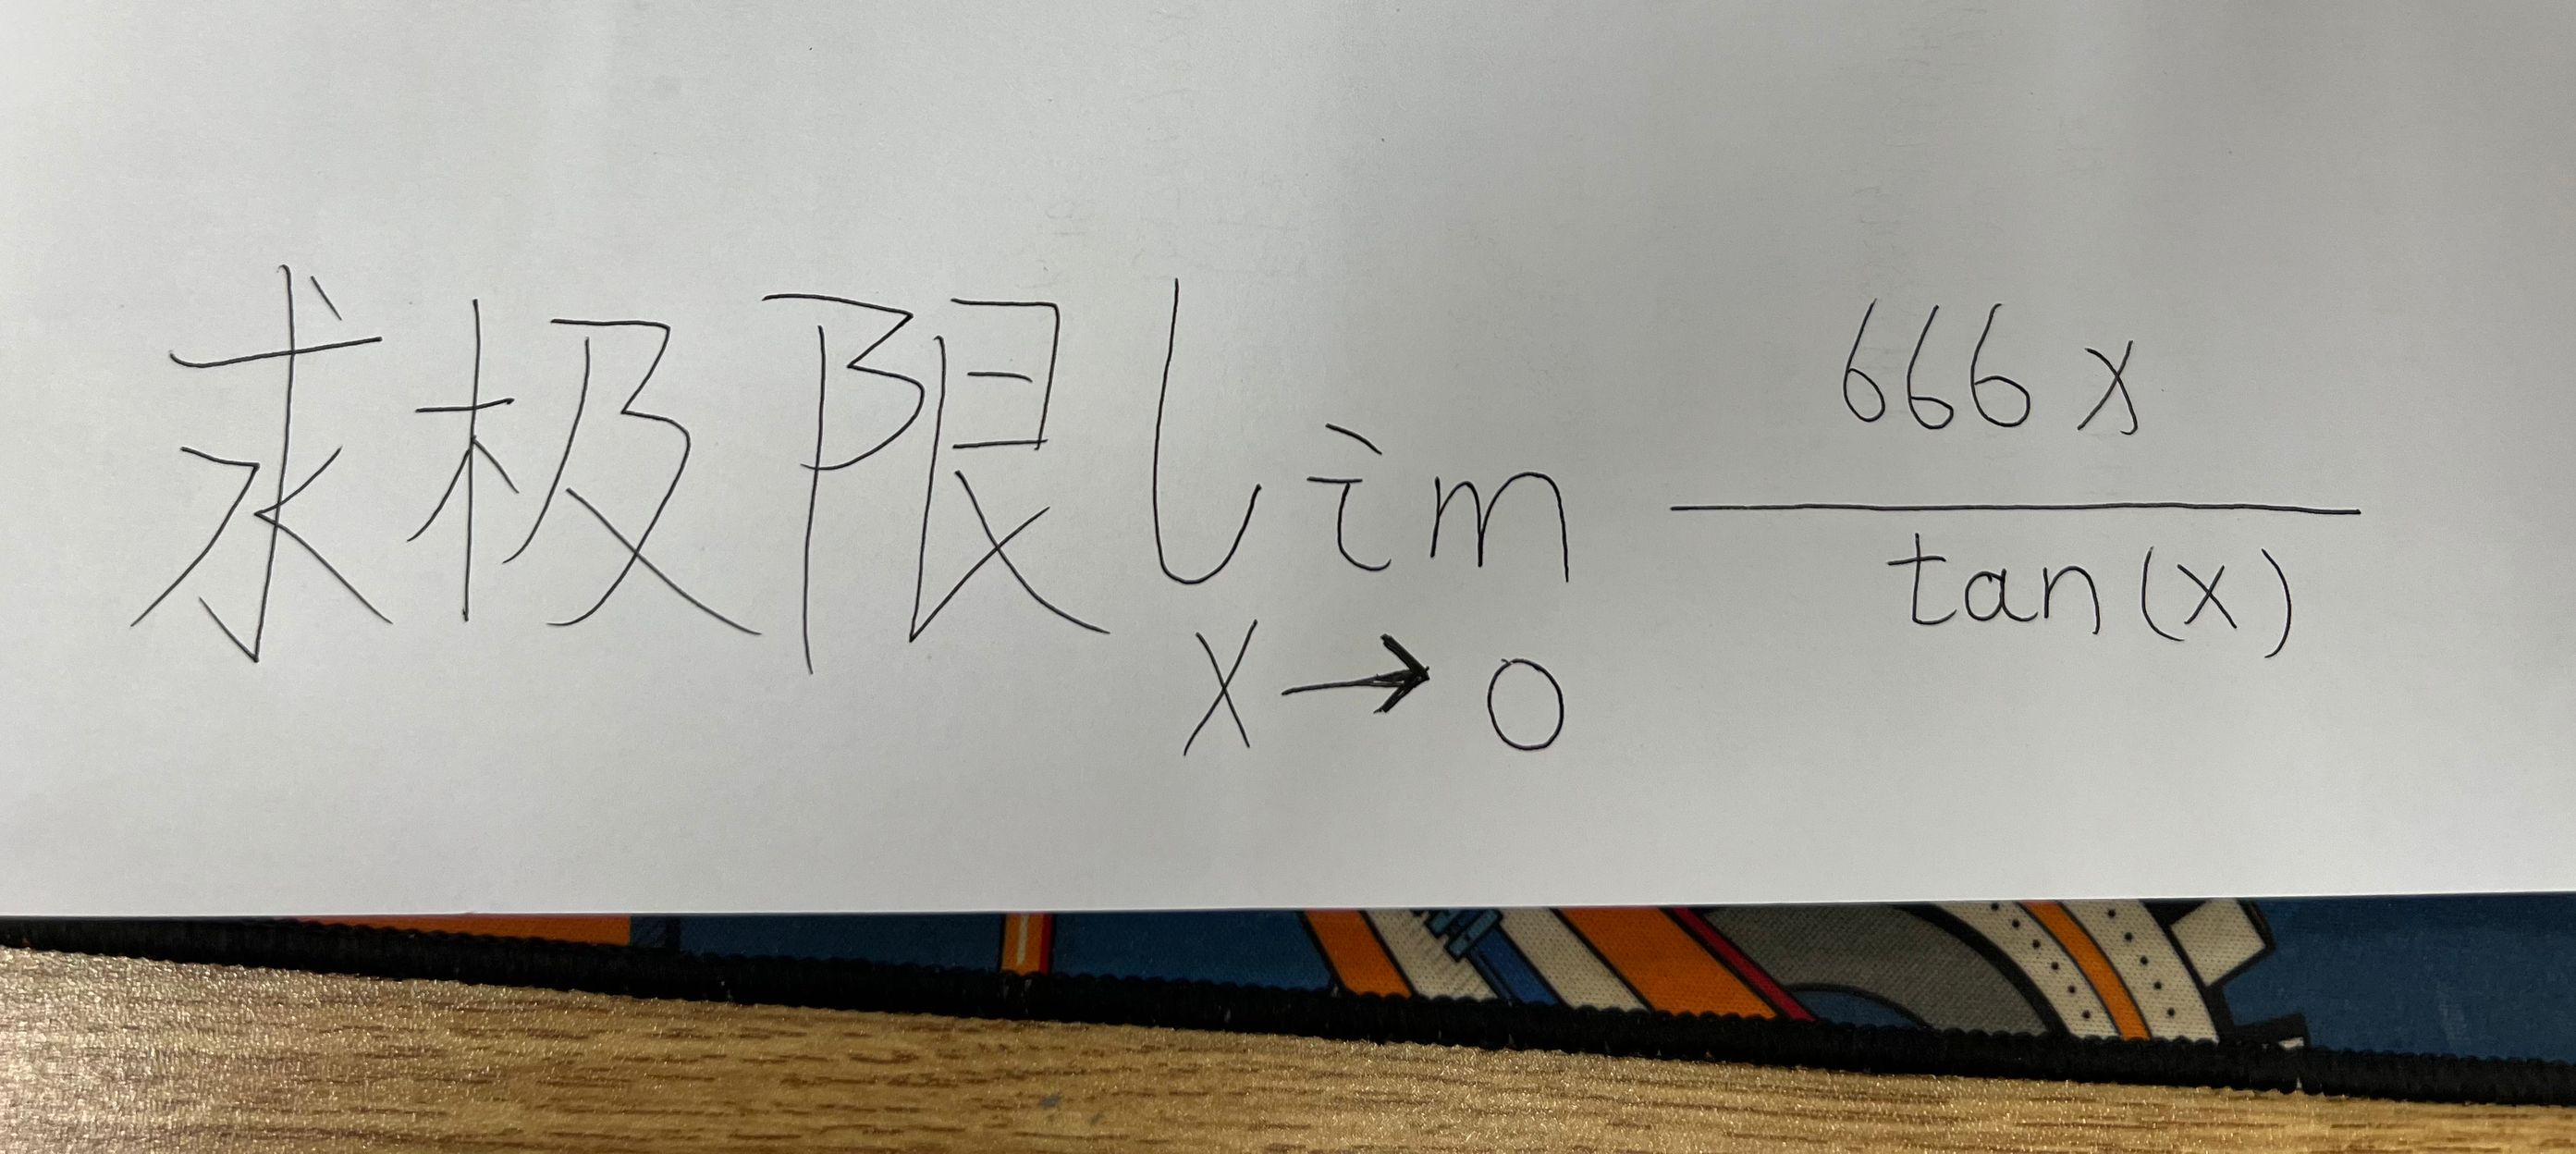 求极限 lim x→0 666x / tan(x)